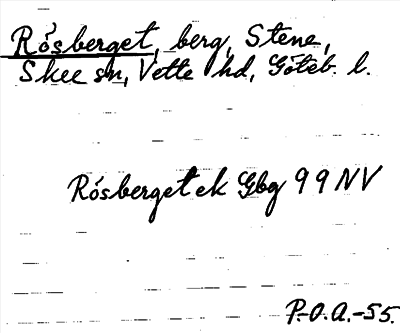 Rösberget, berg, Stene,
Skee sn, Vette hd, Göteb. l.
Rösberget ek Gbg 99 NV
P.-O.A.-55.